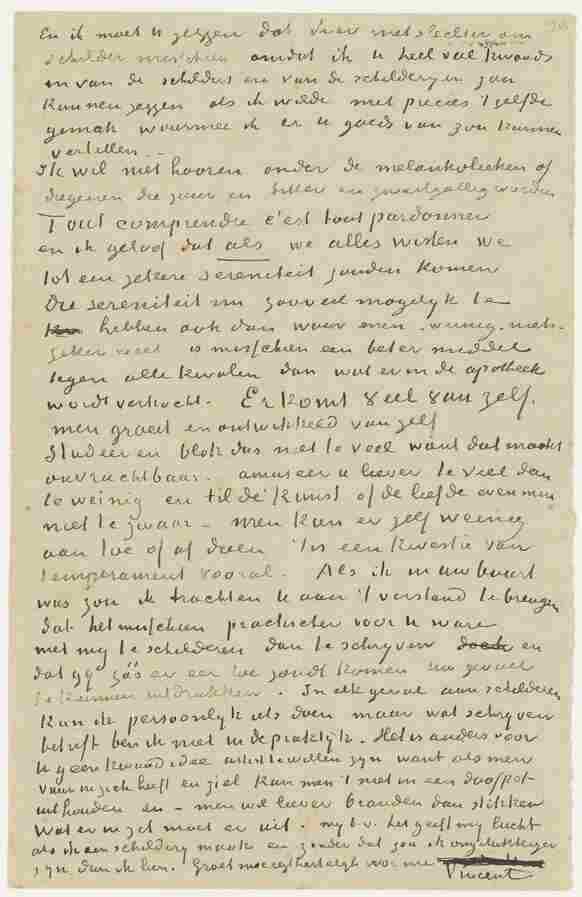 En ik moet u zeggen dat
schilder misschien omdat ik u heel veel kwaads
en van de schilders en van de schilderijen zou
kunnen zeggen als ik wilde met precies 't zelfde
gemak waarmee ik er u goeds van zou kunnen
vertellen —
Ik wil niet hooren onder de melankolieken of
diegenen die zuur en bitter en zwartgallig worden
Tout comprendre c'est tout pardonner
en ik geloof dat als we alles wisten we
tot een zekere sereniteit zouden komen
Die sereniteit nu zooveel mogelijk te
hebben ook dan waar men weinig – niets –
zeker weet is misschien een beter middel
tegen alle kwalen dan wat er in de apotheek
wordt verkocht. Er komt veel van zelf.
men groeit en ontwikkeld van zelf
Studeer en blok dus niet te veel want dat maakt
onvruchtbaar. amuseer u liever te veel dan
te weinig en til de kunst of de liefde evenmin
niet te zwaar – men kan er zelf weinig
aan toe of af doen 't is een kwestie van
temperament vooral. Als ik in uw buurt
was zou ik trachten u aan 't verstand te brengen
dat het misschien practischer voor u ware
met mij te schilderen dan te schrijven en
dat gij zóó er eer toe zoudt komen uw gevoel
te kunnen uitdrukken. In elk geval aan schilderen
kan ik persoonlijk iets doen maar wat schrijven
betreft ben ik niet in de praktijk. Het is anders voor
u geen kwaad idee artist te willen zijn want als men
vuur in zich heeft en ziel kan men 't niet in een doofpot
uithouden en – men wil liever branden dan stikken
Wat er in zit moet er uit. mij b.v. het geeft mij lucht
als ik een schilderij maak en zonder dat zou ik ongelukkiger
zijn dan ik ben. Groet moe regt hartelijk voor me
Vincent